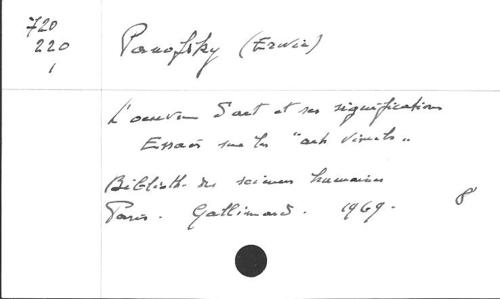 720
220
1
Panofsky (Erwin)
L'oeuvre d'art et ses significations
Essais sur les "arts visuels"
Biblioth. des sciences humaines
Paris. Gallimard. 1969.
8